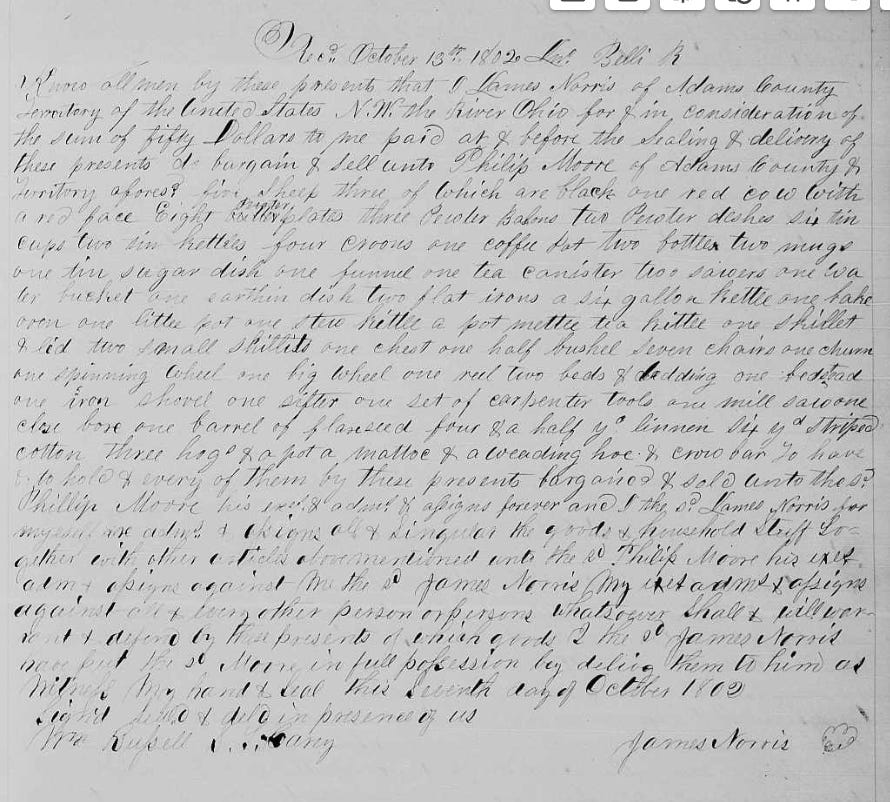 Rec'd October 13th 1802 Belli R
Know all men by these presents that I James Norris of Adams County
Territory of the United States N.W. the River Ohio for & in consideration of
the sum of fifty Dollars to me paid at & before the Sealing & delivery of
these presents do bargain & Sell unto Philip Moore of Adams County &
Territory aforesd five Sheep three of which are black one red cow with
a red face Eight pewter plates three Pewter Basons two Pewter deshes six tin
cups two tin kettles four one coffee pot two bottles two mugs
one tin sugar dish one funnel one tea canister two sawers one wa
ter bucket one earthin dish two flat irons a six gallon kettle one bake
oven one little pot one stew kittle a pot mettle tea kittle one skillet
& lid two small skillits one chest one half bushel seven chairs one churn
one spinning wheel one big wheel one reel two beds & bedding one bedstead
one iron shovel one sifter one set of carpenter tools one mill saw one
bore one barrel of flaxseed four & a half yd linnen six yd striped
cotton three hogs & a pot a mattoc & a weading hoe & crow bar To have
& to hold & every of them by these presents bargained & sold unto the sd
Phillip Moore his exrs & admrs & assigns forever and I the sd James Norris for
myself admrs & assigns all & Singular the goods & household Stuff to=
gether with other articles abovementioned unto the sd Philip Moore his exet
adm & assigns against me the sd James Norris my exet admrs & assigns
against all & every other person or persons whatsoever Shall & will war-
rant & defend by these presents of which goods I the sd James Norris
have put the sd Moore in full possession by delivg them to him as
Witness my hand & Seal this Seventh day of October 1802
Sign'd Seal'd & deld in presence of us
Wm Russell James Norris